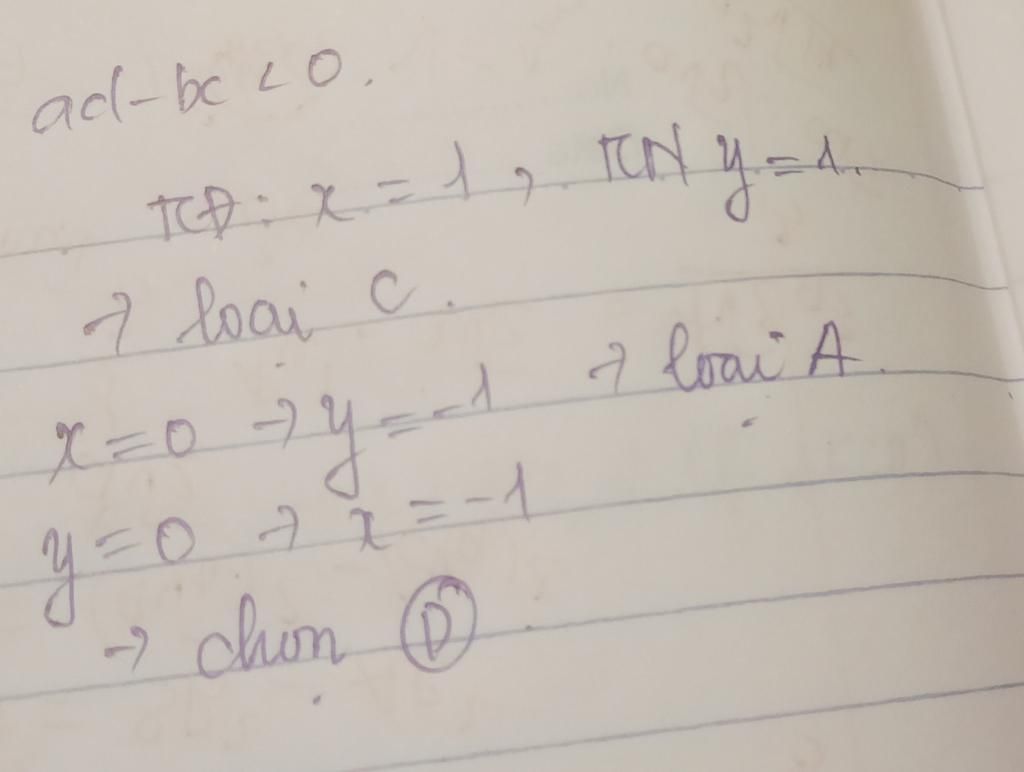 ad - bc < 0.
TCĐ: x = 1, TCN y = 1.
→ loại C.
x = 0 → y = -1 → loại A.
y = 0 → x = -1
→ chọn D